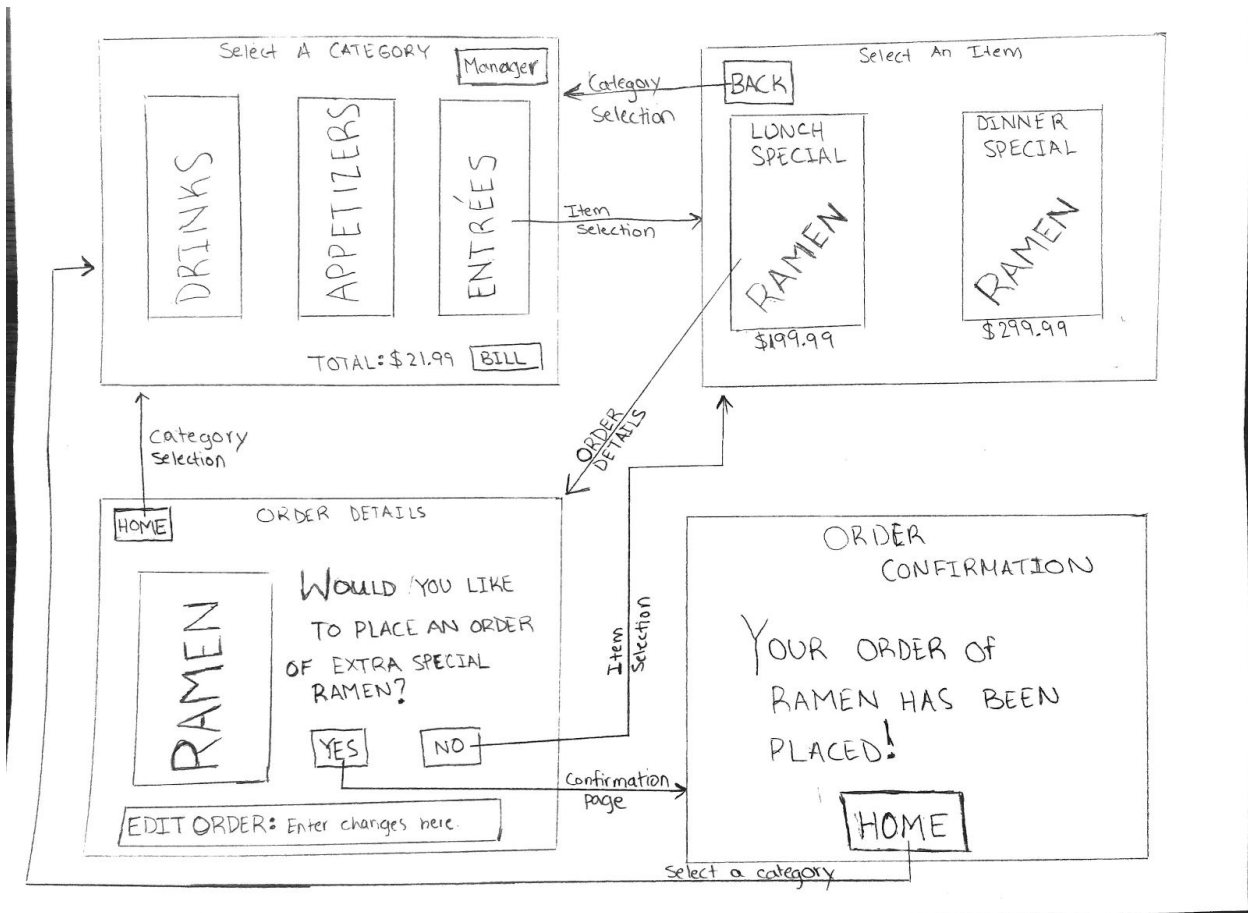 Select A CATEGORY
Manager
DRINKS
APPETIZERS
ENTRÉES
TOTAL: $21.99 BILL
Category
Selection
Item
Selection
Select An Item
BACK
LUNCH
SPECIAL
RAMEN
$199.99
DINNER
SPECIAL
RAMEN
$299.99
Category
Selection
ORDER
DETAILS
HOME
ORDER DETAILS
RAMEN
WOULD YOU LIKE
TO PLACE AN ORDER
OF EXTRA SPECIAL
RAMEN?
YES
NO
EDIT ORDER: Enter changes here.
Item
Selection
Confirmation
page
ORDER
CONFIRMATION
YOUR ORDER Of
RAMEN HAS BEEN
PLACED!
HOME
Select a category